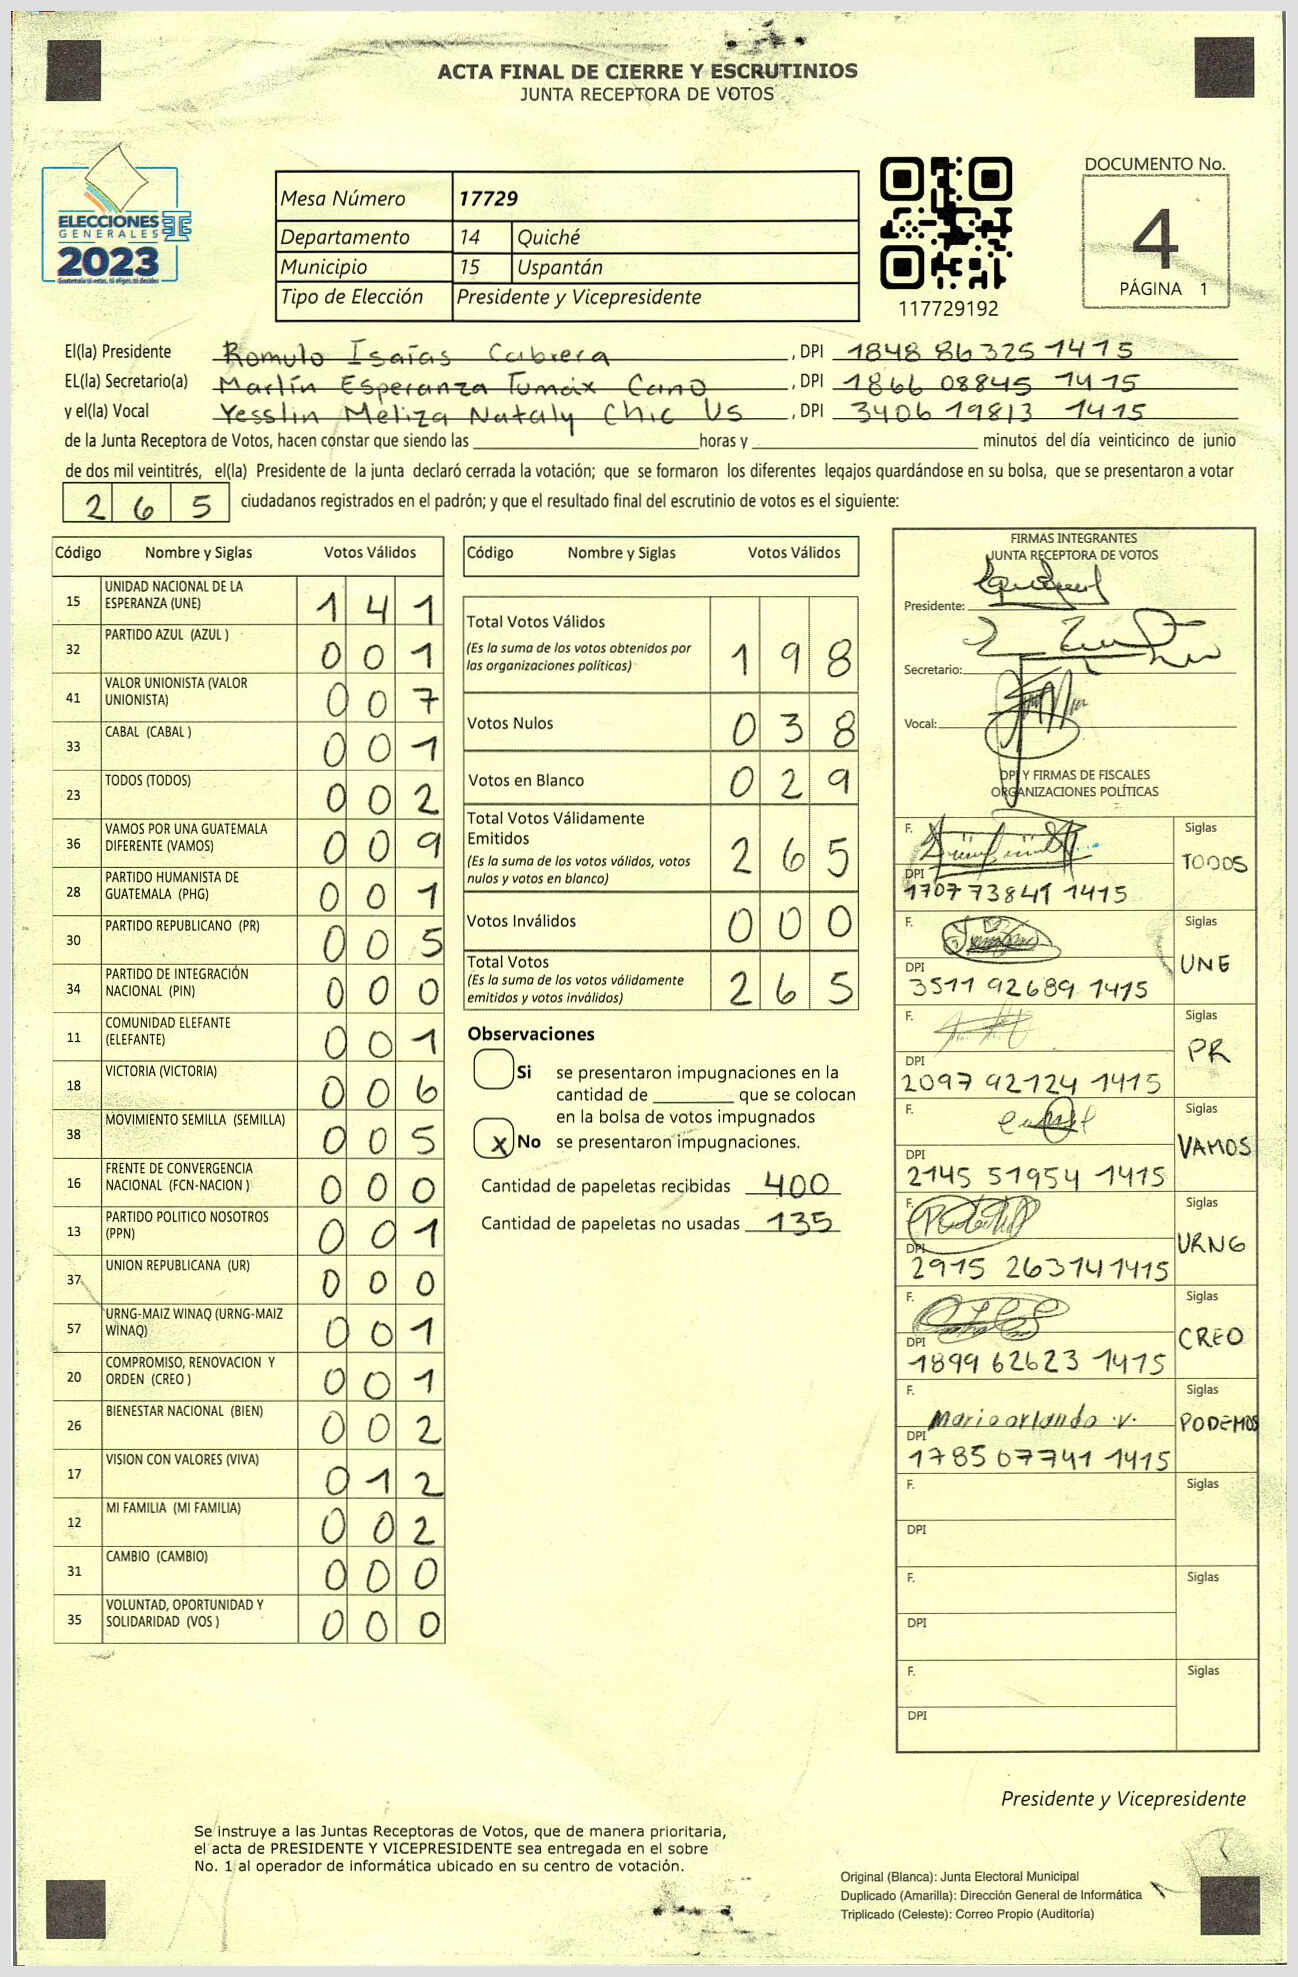 ACTA FINAL DE CIERRE Y ESCRUTINIOS
JUNTA RECEPTORA DE VOTOS
ELECCIONES
GENERALES
2023
Mesa Número 17729
Departamento 14 Quiché
Municipio 15 Uspantán
Tipo de Elección Presidente y Vicepresidente
117729192
DOCUMENTO No.
4
PÁGINA 1
El(la) Presidente Romulo Isaías Cabrera, DPI 1848 86325 1415
EL(la) Secretario(a) Marlín Esperanza Tumáx Cano, DPI 1866 08845 1415
y el(la) Vocal Yesslin Meliza Nataly Chic Us, DPI 3406 19813 1415
de la Junta Receptora de Votos, hacen constar que siendo las horas y minutos del día veinticinco de junio
de dos mil veintitrés, el(la) Presidente de la junta declaró cerrada la votación; que se formaron los diferentes legajos quardándose en su bolsa, que se presentaron a votar
265 ciudadanos registrados en el padrón; y que el resultado final del escrutinio de votos es el siguiente:
Código Nombre y Siglas Votos Válidos
15 UNIDAD NACIONAL DE LA
ESPERANZA (UNE) 141
32 PARTIDO AZUL (AZUL ) 001
41 VALOR UNIONISTA (VALOR
UNIONISTA) 007
33 CABAL (CABAL ) 001
23 TODOS (TODOS) 002
36 VAMOS POR UNA GUATEMALA
DIFERENTE (VAMOS) 009
28 PARTIDO HUMANISTA DE
GUATEMALA (PHG) 001
30 PARTIDO REPUBLICANO (PR) 005
34 PARTIDO DE INTEGRACIÓN
NACIONAL (PIN) 000
11 COMUNIDAD ELEFANTE
(ELEFANTE) 001
18 VICTORIA (VICTORIA) 006
38 MOVIMIENTO SEMILLA (SEMILLA) 005
16 FRENTE DE CONVERGENCIA
NACIONAL (FCN-NACION ) 000
13 PARTIDO POLITICO NOSOTROS
(PPN) 001
37 UNION REPUBLICANA (UR) 000
57 URNG-MAIZ WINAQ (URNG-MAIZ
WINAQ) 001
20 COMPROMISO, RENOVACION Y
ORDEN (CREO ) 001
26 BIENESTAR NACIONAL (BIEN) 002
17 VISION CON VALORES (VIVA) 012
12 MI FAMILIA (MI FAMILIA) 002
31 CAMBIO (CAMBIO) 000
35 VOLUNTAD, OPORTUNIDAD Y
SOLIDARIDAD (VOS ) 000
Código Nombre y Siglas Votos Válidos
Total Votos Válidos
(Es la suma de los votos obtenidos por
las organizaciones políticas) 198
Votos Nulos 038
Votos en Blanco 029
Total Votos Válidamente
Emitidos
(Es la suma de los votos válidos, votos
nulos y votos en blanco) 265
Votos Inválidos 000
Total Votos
(Es la suma de los votos válidamente
emitidos y votos inválidos) 265
Observaciones
Si se presentaron impugnaciones en la
cantidad de que se colocan
en la bolsa de votos impugnados
x No se presentaron impugnaciones.
Cantidad de papeletas recibidas 400
Cantidad de papeletas no usadas 135
FIRMAS INTEGRANTES
JUNTA RECEPTORA DE VOTOS
Presidente:
Secretario:
Vocal:
DPI Y FIRMAS DE FISCALES
ORGANIZACIONES POLÍTICAS
F. Siglas
TODOS
DPI
1707 73841 1415
F. Siglas
UNE
DPI
3511 92689 1415
F. Siglas
PR
DPI
2097 92124 1415
F. Siglas
VAMOS
DPI
2145 51954 1415
F. Siglas
URNG
DPI
2915 26314 1415
F. Siglas
CREO
DPI
1899 62623 1415
F. Siglas
Mario orlando .v. PODEMOS
DPI
1785 07741 1415
F. Siglas
DPI
F. Siglas
DPI
F. Siglas
DPI
Presidente y Vicepresidente
Se instruye a las Juntas Receptoras de Votos, que de manera prioritaria,
el acta de PRESIDENTE Y VICEPRESIDENTE sea entregada en el sobre
No. 1 al operador de informática ubicado en su centro de votación.
Original (Blanca): Junta Electoral Municipal
Duplicado (Amarilla): Dirección General de Informática
Triplicado (Celeste): Correo Propio (Auditoría)